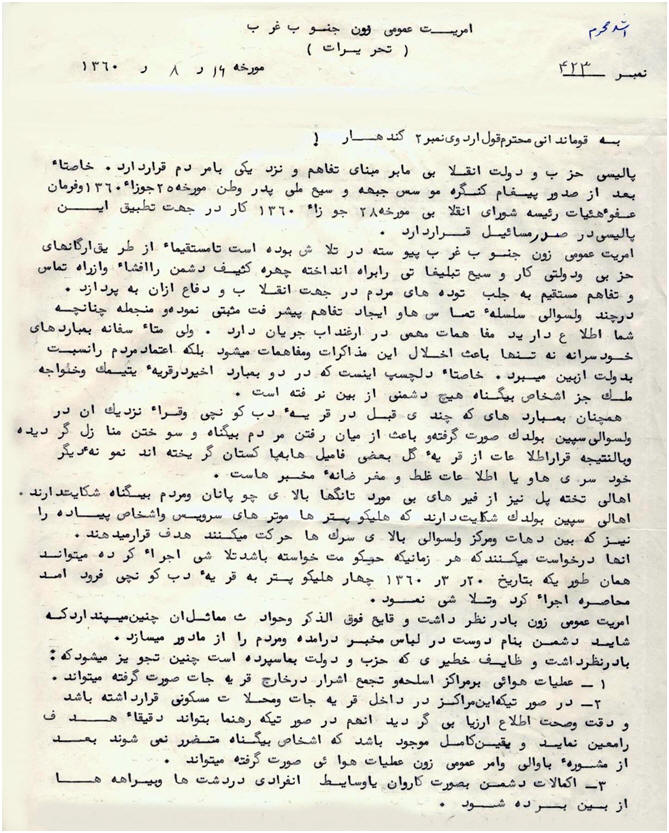 اشد محرم
امریت عمومی زون جنوب غرب
( تحریرات )
نمبر ۴۲۳ مورخه ۱۶ ر ۸ ر ۱۳۶۰
به قوماندانی محترم قول اردوی نمبر ۲ کندهار !
پالیسی حزب و دولت انقلابی مابر مبنای تفاهم و نزدیکی بامردم قراردارد. خاصتاء
بعد از صدور پیغام کنگره موسس جبهه و سیع ملی پدر وطن مورخه ۲۵ جوزاء ۱۳۶۰ وفرمان
عفوء هئیات رئیسه شورای انقلابی مورخه ۲۸ جوزاء ۱۳۶۰ کار در جهت تطبیق این
پالیسی در صدر مسائیل قراردارد .
امریت عمومی زون جنوب غرب پیوسته در تلاش بوده است تامستقیماء از طریق ارگانهای
حزبی ودولتی کار و سیع تبلیغاتی رابراه انداخته چهره کثیف دشمن راافشاء وازراه تماس
و تفاهم مستقیم به جلب توده های مردم در جهت انقلاب و دفاع ازان به پردازد .
درچند ولسوالی سلسلهء تماس هاو ایجاد تفاهم پیشرفت مثبتی نمودهو منجطه چنانچه
شما اطلاع دارید مفاهمات مهمی در ارغنداب جریان دارد . ولی متاءسفانه بمباردهای
خودسرانه نه تنها باعث اخلال این مذاکرات ومفاهمات میشود بلکه اعتمادمردم رانسبت
بدولت ازبین میبرد . خاصتاء دلچسپ اینست که در دو بمبارد اخیردرقریهء یتیمک وخلواجه
ملک جز اشخاص بیگناه هیچ دشمنی از بین نرفته است .
همچنان بمبارد های که چندی قبل در قریهء دب کوچنی وقراء نزدیک ان در
ولسوالی سپین بولدک صورت گرفتهو باعث از میان رفتن مردم بیگناه و سوختن منازل گردیده
وبالنتیجه قراراطلاعات از قریهء گل بعضی فامیل هابهپاکستان گریخته اند نمونهء دیگر
خود سری هاو یا اطلاعات غلط و مغرضانهء مخبرهاست .
اهالی تخته پل نیز از فیرهای بی مورد تانگها بالای چوپانان ومردم بیگناه شکایتدارند .
اهالی سپین بولدک شکایتدارند که هلیکوپترها موترهای سرویس واشخاص پیاده را
نیز که بین دهات ومرکز ولسوالی بالای سرک ها حرکت میکنند هدف قرارمیدهند .
انها درخواست میکنندکه هر زمانیکه حکومت خواسته باشدتلاشی اجراء کرده میتواند
همان طوریکه بتاریخ ۲۰ ر ۳ ر ۱۳۶۰ چهار هلیکوپتر به قریهء دب کوچنی فرود امد
محاصره اجراء کرد وتلاشی نمود .
امریت عمومی زون بادرنظر داشت و قایع فوق الذکر وحوادث مماثل ان چنین میپنداردکه
شاید دشمن بنام دوست در لباس مخبر درامده ومردم را از مادور میسازد .
بادرنظرداشت و ظایف خطیری که حزب و دولت بماسپرده است چنین تجویز میشودکه :
۱ــ عملیات هوائی برمراکز اسلحهو تجمع اشرار درخارج قریه جات صورت گرفته میتواند .
۲ــ در صورتیکهاین مراکز در داخل قریه جات ومحلات مسکونی قرارداشته باشد
و دقت وصحت اطلاع ارزیابی گردید انهم در صورتیکه رهنما بتواند دقیقاء هدف
رامعین نماید و یقین کامل موجود باشد که اشخاص بیگناه متضرر نمی شوند بعد
از مشورهء باوالی وامر عمومی زون عملیات هوائی صورت گرفته میتواند .
۳ــ اکمالات دشمن بصورت کاروان یاوسایط انفرادی دردشت ها وبیراهه ها
از بین برده شود .